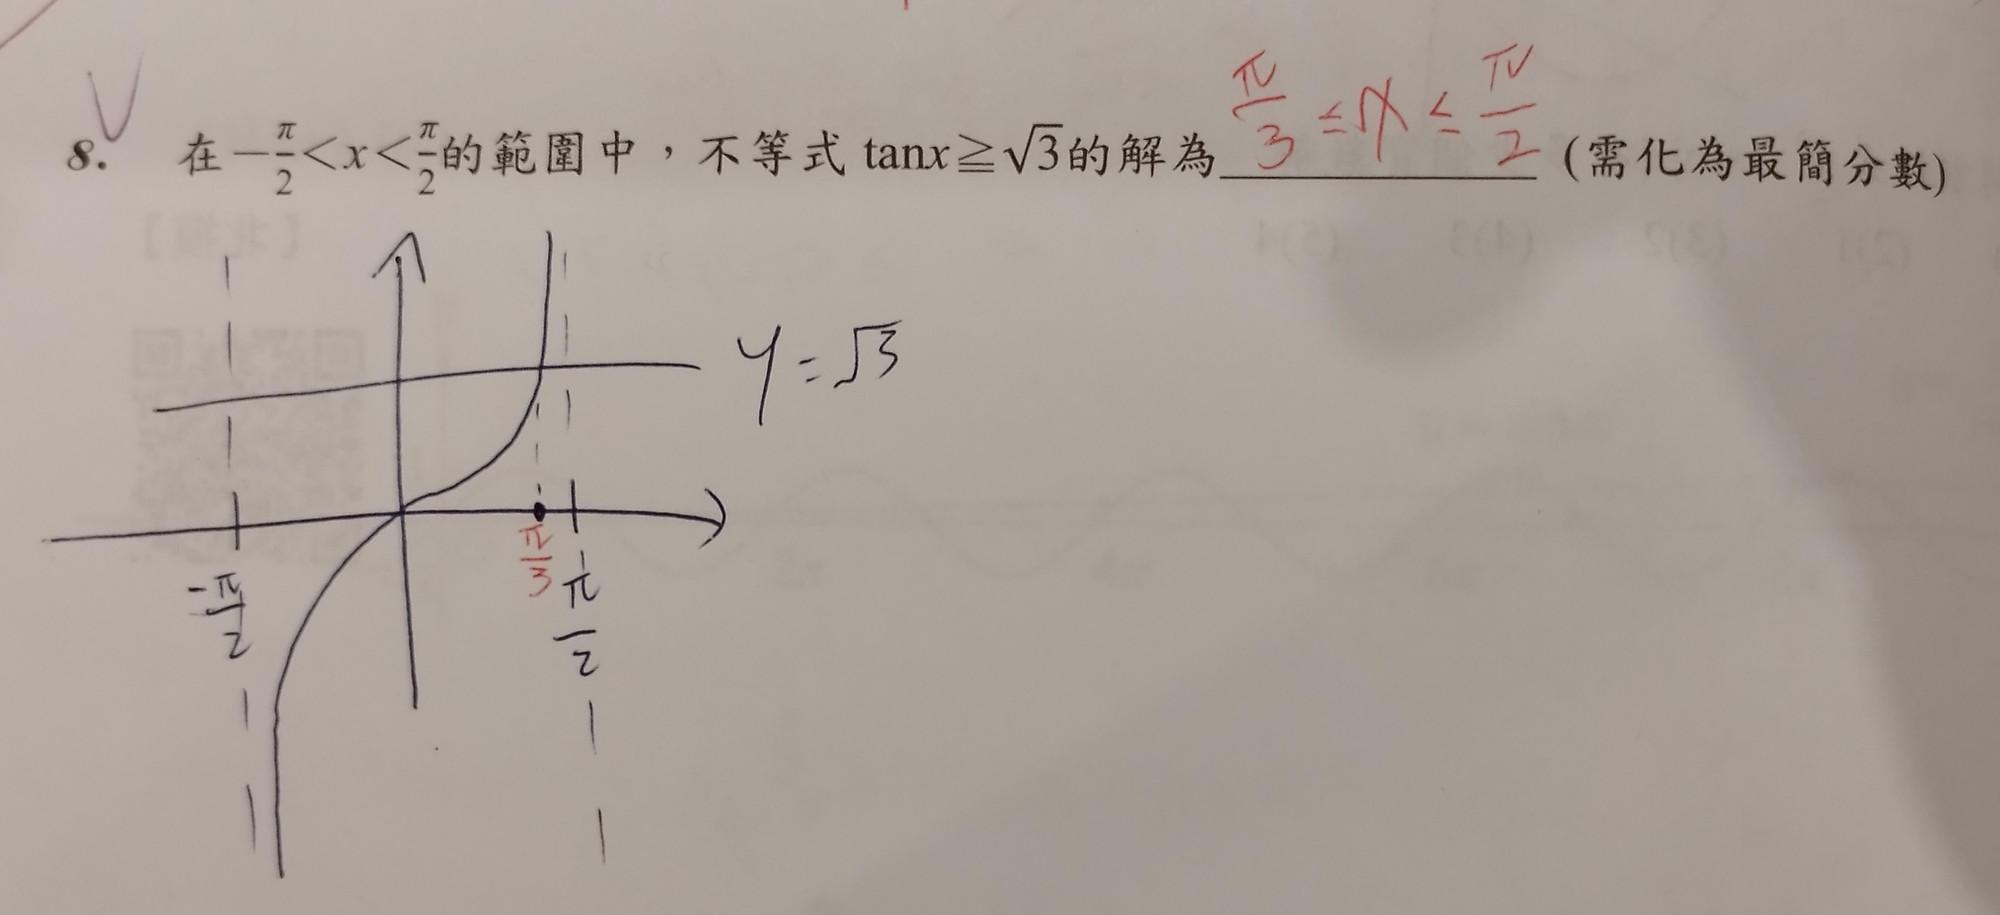 8. 在 -π/2 < x < π/2 的範圍中，不等式 tanx ≧ √3 的解為 π/3 ≤ x ≤ π/2 (需化為最簡分數)
y = √3
-π/2 π/3 π/2